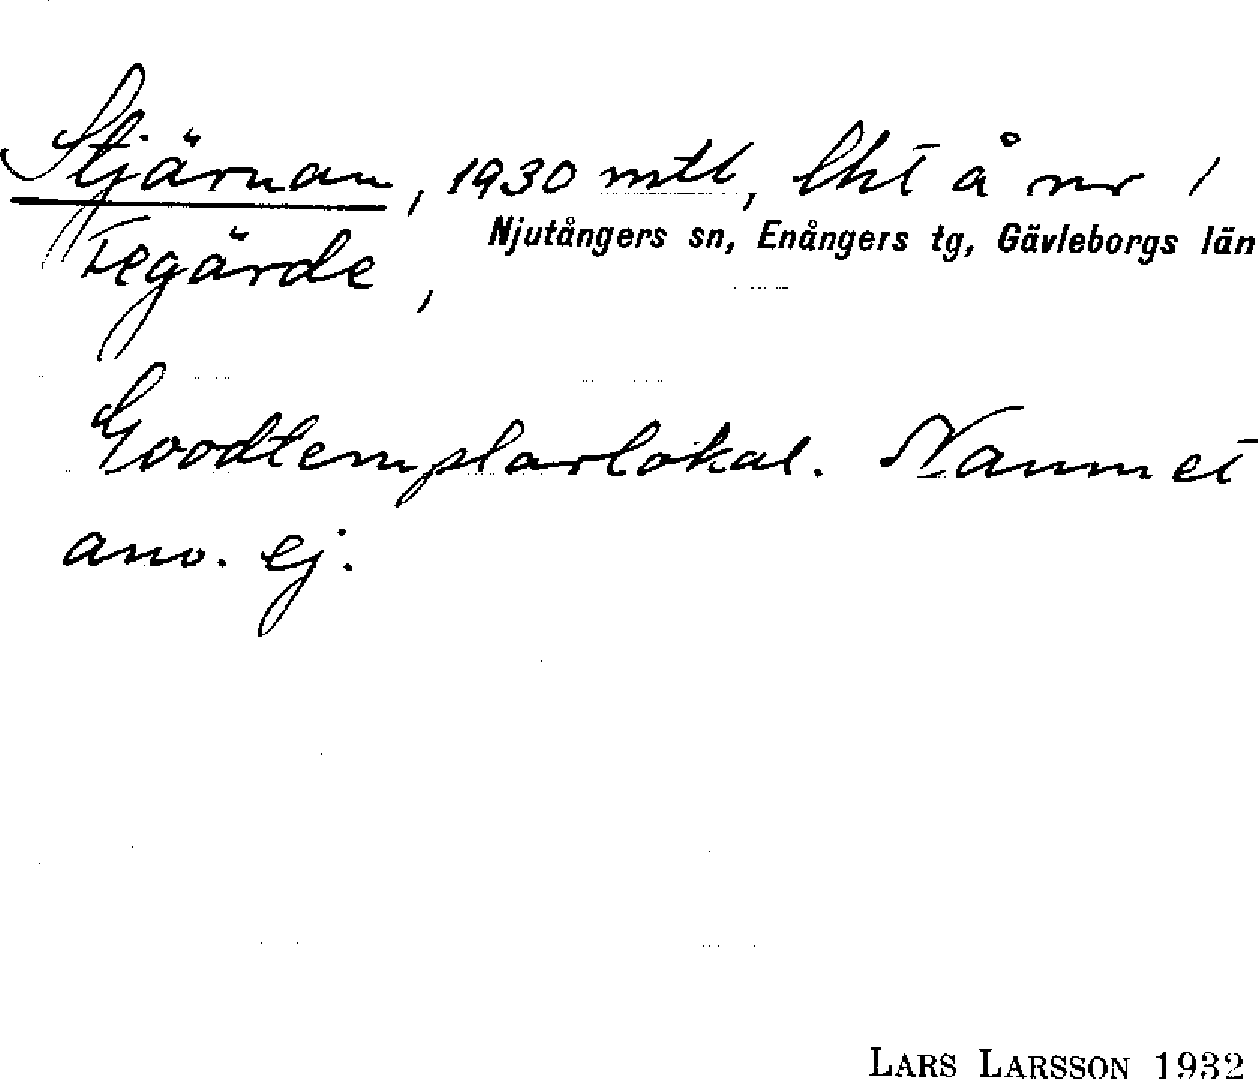 Stjärnan, 1930 mtl, lht å nr 1
Njutångers sn, Enångers tg, Gävleborgs län
Tegärde,
Goodtemplarlokal. Namnet
anv. ej.
LARS LARSSON 1932